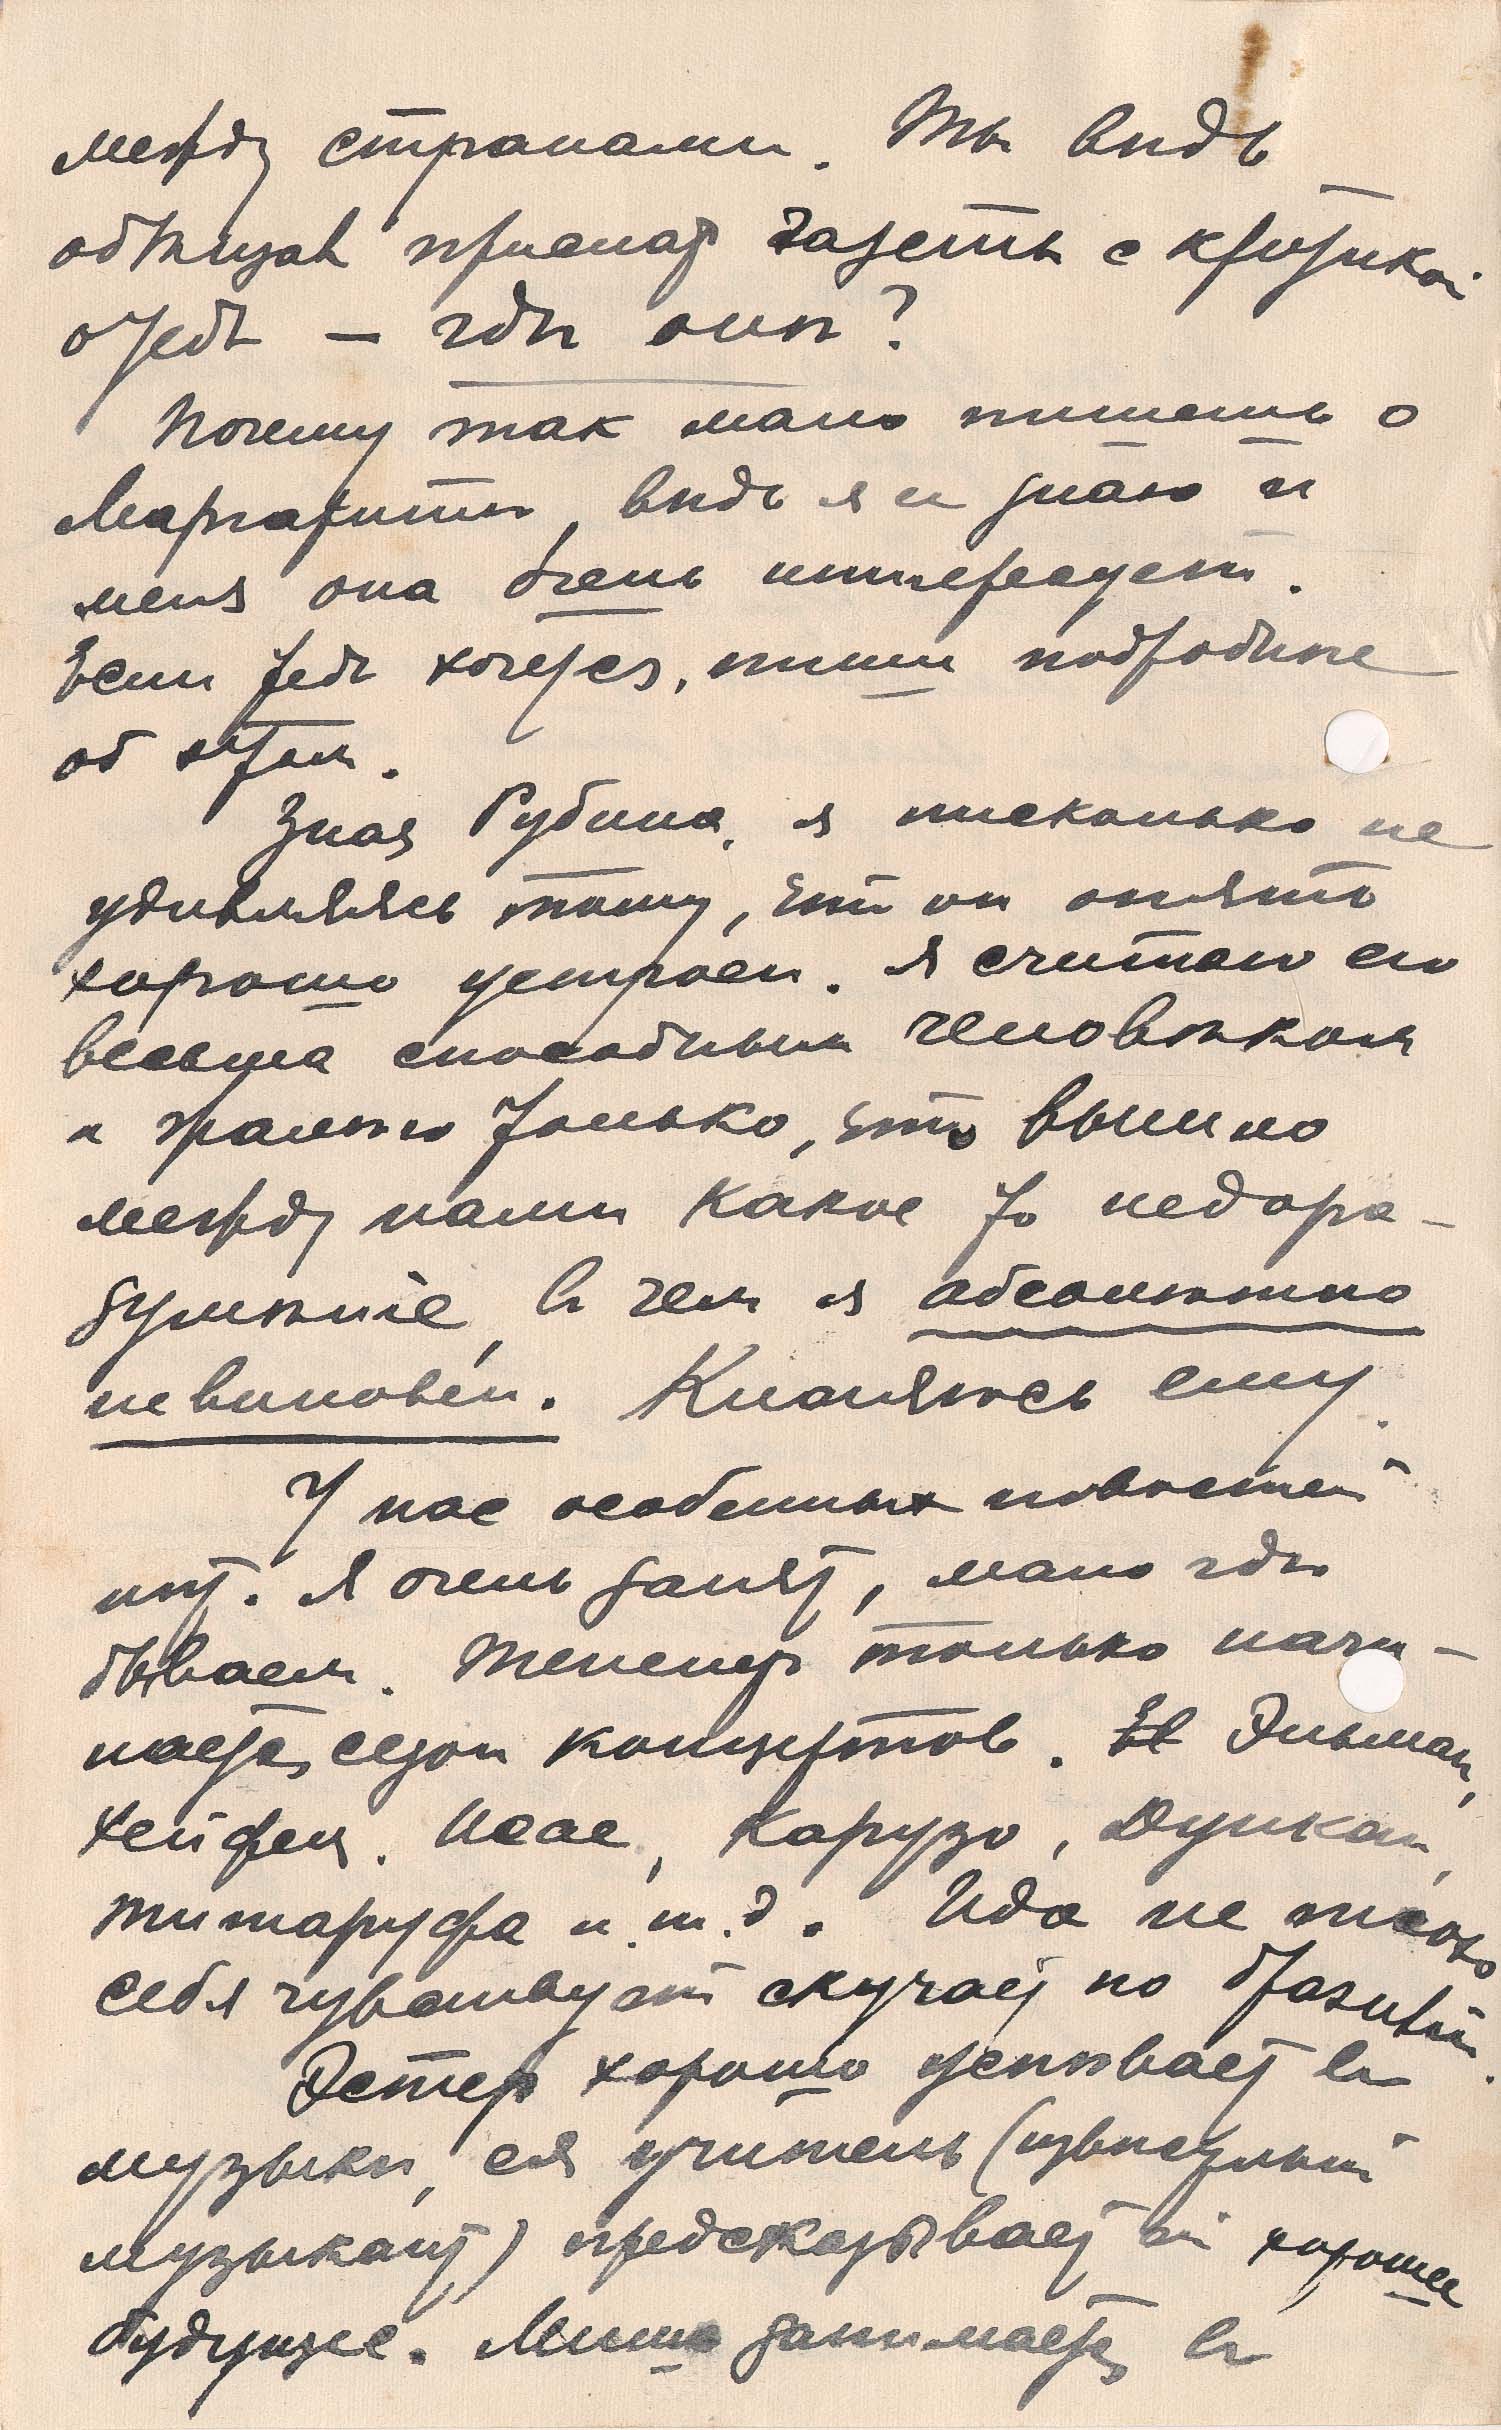 между странами. Ты вѣдь
обѣщав прислат газеты с критикой
о тебѣ — гдѣ они?
Почему так мало пишешь о
Маргаритѣ, вѣдь я и знаю и
меня она очень интересует.
Если тебѣ хочется, пиши подробнѣе
об этом.
Зная Рубина, я нисколько не
удивляюсь тому, что он опять
хорошо устроен. Я считаю его
весьма способным человѣком
и жалѣю только, что вышло
между нами какое то недора-
зумѣніе, в чем я абсолютно
невиновен. Кланяюсь ему.
У нас особенных новостей
нѣт. Я очень занят, мало гдѣ
бываем. Теперь только начи-
нается сезон концертов. Эльман,
Хейфец, Исае, Карузо, Дункан,
Титаруфа и.т.д. Ида не плохо
себя чувствует скучает по Бразиліи.
Эстер хорошо успѣвает в
музыкѣ, ея учитель (извѣстный
музыкант) предсказывает ей хорошее
будущее. Миша занимается в